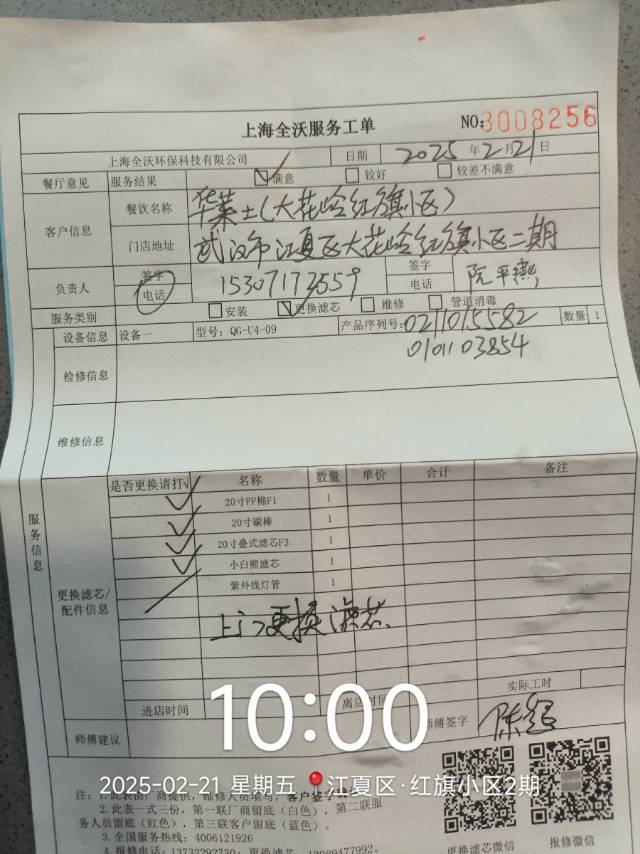 上海全沃服务工单
NO:3008256
上海全沃环保科技有限公司 日期 2025年2月21日
餐厅意见 服务结果 满意 较好 较差不满意
客户信息 餐饮名称 华莱士(大花岭红旗小区)
门店地址 武汉市江夏区大花岭红旗小区二期
负责人 签字 电话 15307173559 签字 电话 阮平燕
服务类别 安装 更换滤芯 维修 管道消毒
设备信息 设备一 型号:QG-U4-09 产品序列号:0211015582 数量 1
0101103854
检修信息
维修信息
服务信息
是否更换请打√ 名称 数量 单价 合计 备注
20寸PP棉F1 1
20寸碳棒 1
20寸叠式滤芯F3 1
小白熊滤芯 1
更换滤芯/配件信息 紫外线灯管 1
上门更换滤芯.
实际工时
进店时间 离店时间
师傅建议 师傅签字
10:00
2025-02-21 星期五 江夏区·红旗小区2期
2.此表一式三份,第一联厂商留底(白色),第二联服
务人员留底(红色),第三联客户留底(蓝色)。
3.全国服务热线:4006121926
更换滤芯微信 报修微信